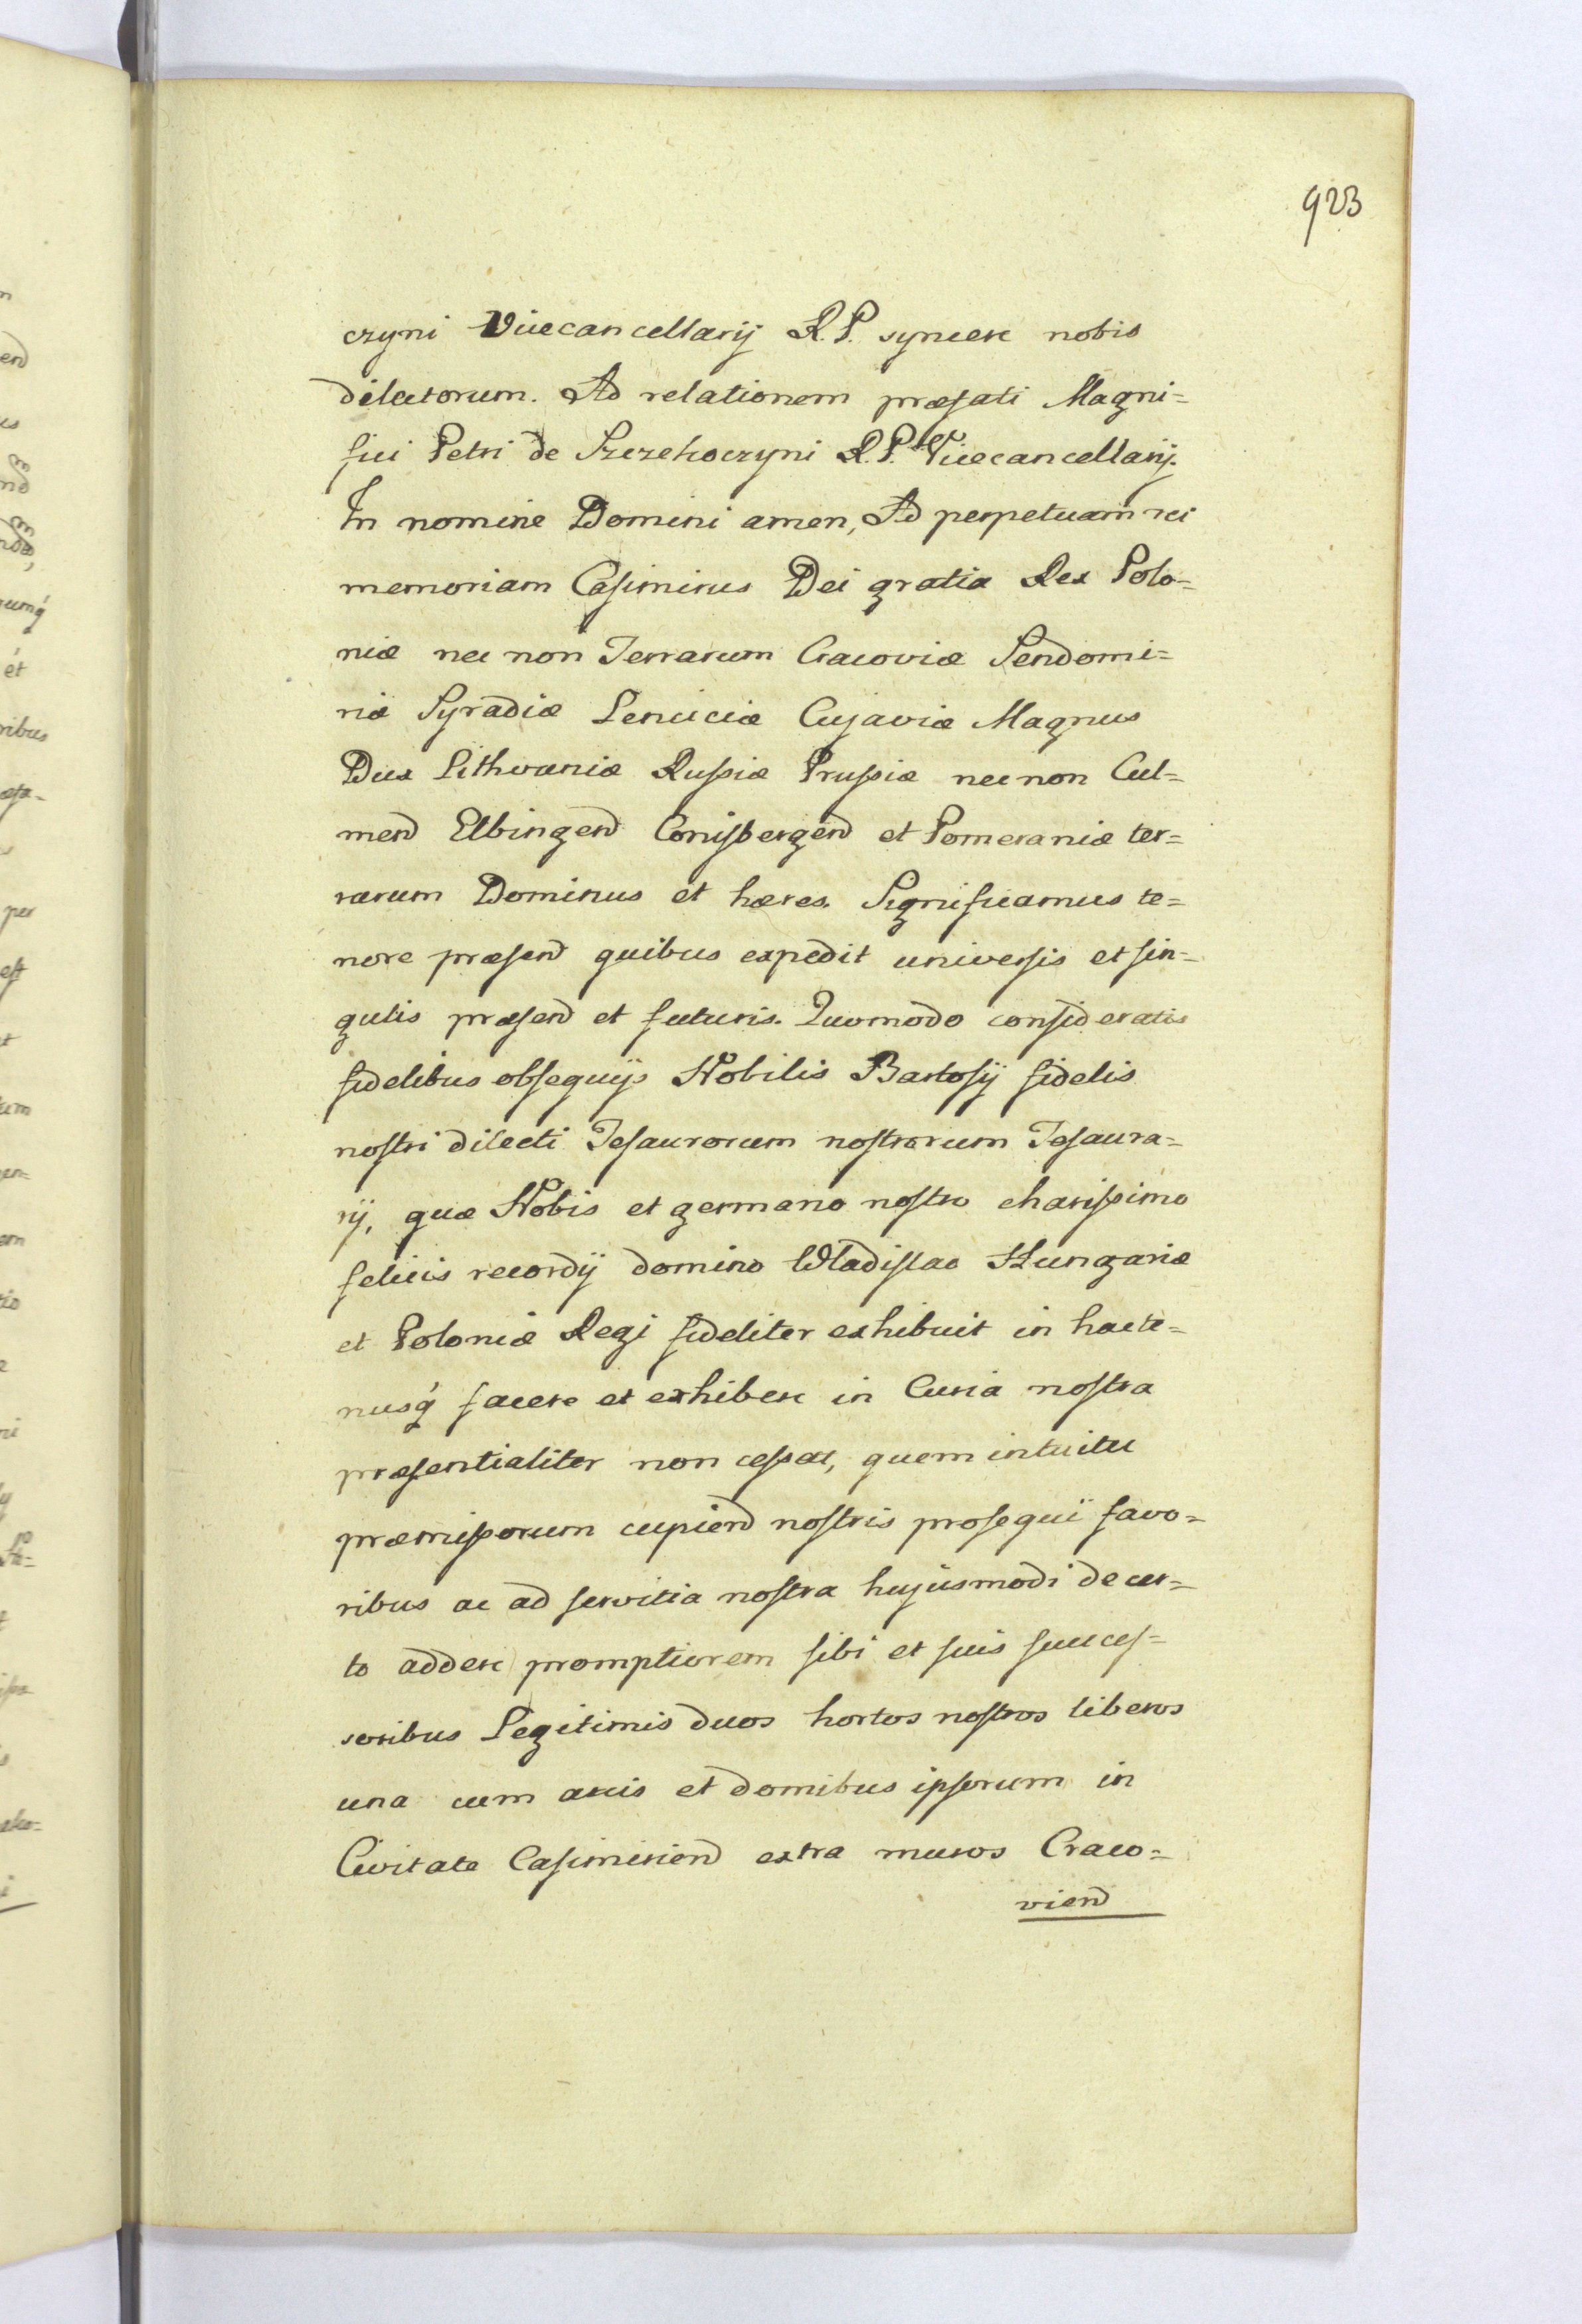 923
czyni Vicecancellarij R. P. syncere nobis
dilectorum. Ad relationem præfati Magni=
fici Petri de Szczekoczyni R. P. Vicecancellarij.
In nomine Domini amen, Ad perpetuam rei
memoriam Casimirus Dei gratia Rex Polo=
niæ nec non Terrarum Cracoviæ Sendomi=
riæ Syradiæ Lenciciæ Cujaviæ Magnus
Dux Lithvaniæ Russiæ Prussiæ nec non Cul=
mend Elbingend Conisbergend et Pomeraniæ ter=
rarum Dominus et hæres. Significamus te=
nore præsend quibus expedit universis et sin=
gulis præsend et futuris. Quomodo consideratis
fidelibus obsequijs Nobilis Bartosij fidelis
nostri dilecti Tesaurorum nostrorum Tesaura=
rij, quæ Nobis et germano nostro charissimo
felicis recordij domino Wladislao Hungariæ
et Poloniæ Regi fideliter exhibuit in hacte=
nusq́ facere et exhibere in Curia nostra
præsentialiter non cessat, quem intuitu
præmissorum cupiend nostris prosequi favo=
ribus ac ad servitia nostra hujusmodi de cer=
to addere promptiorem sibi et suis succes=
soribus Legitimis duos hortos nostros liberos
una cum areis et domibus ipsorum in
Civitate Casimiriend extra muros Craco=
viend